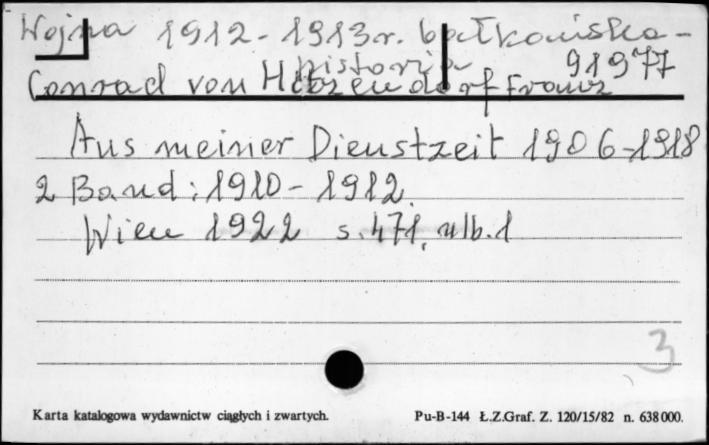 Wojna 1912-1913 r. bałkańska -
historia 91977
Conrad von Hötzendorf Franz
Aus meiner Dienstzeit 1906-1918
2 Band: 1910-1912.
Wien 1922 s. 471, nlb. 1
3
Karta katalogowa wydawnictw ciągłych i zwartych. Pu-B-144 Ł.Z.Graf. Z. 120/15/82 n. 638000.